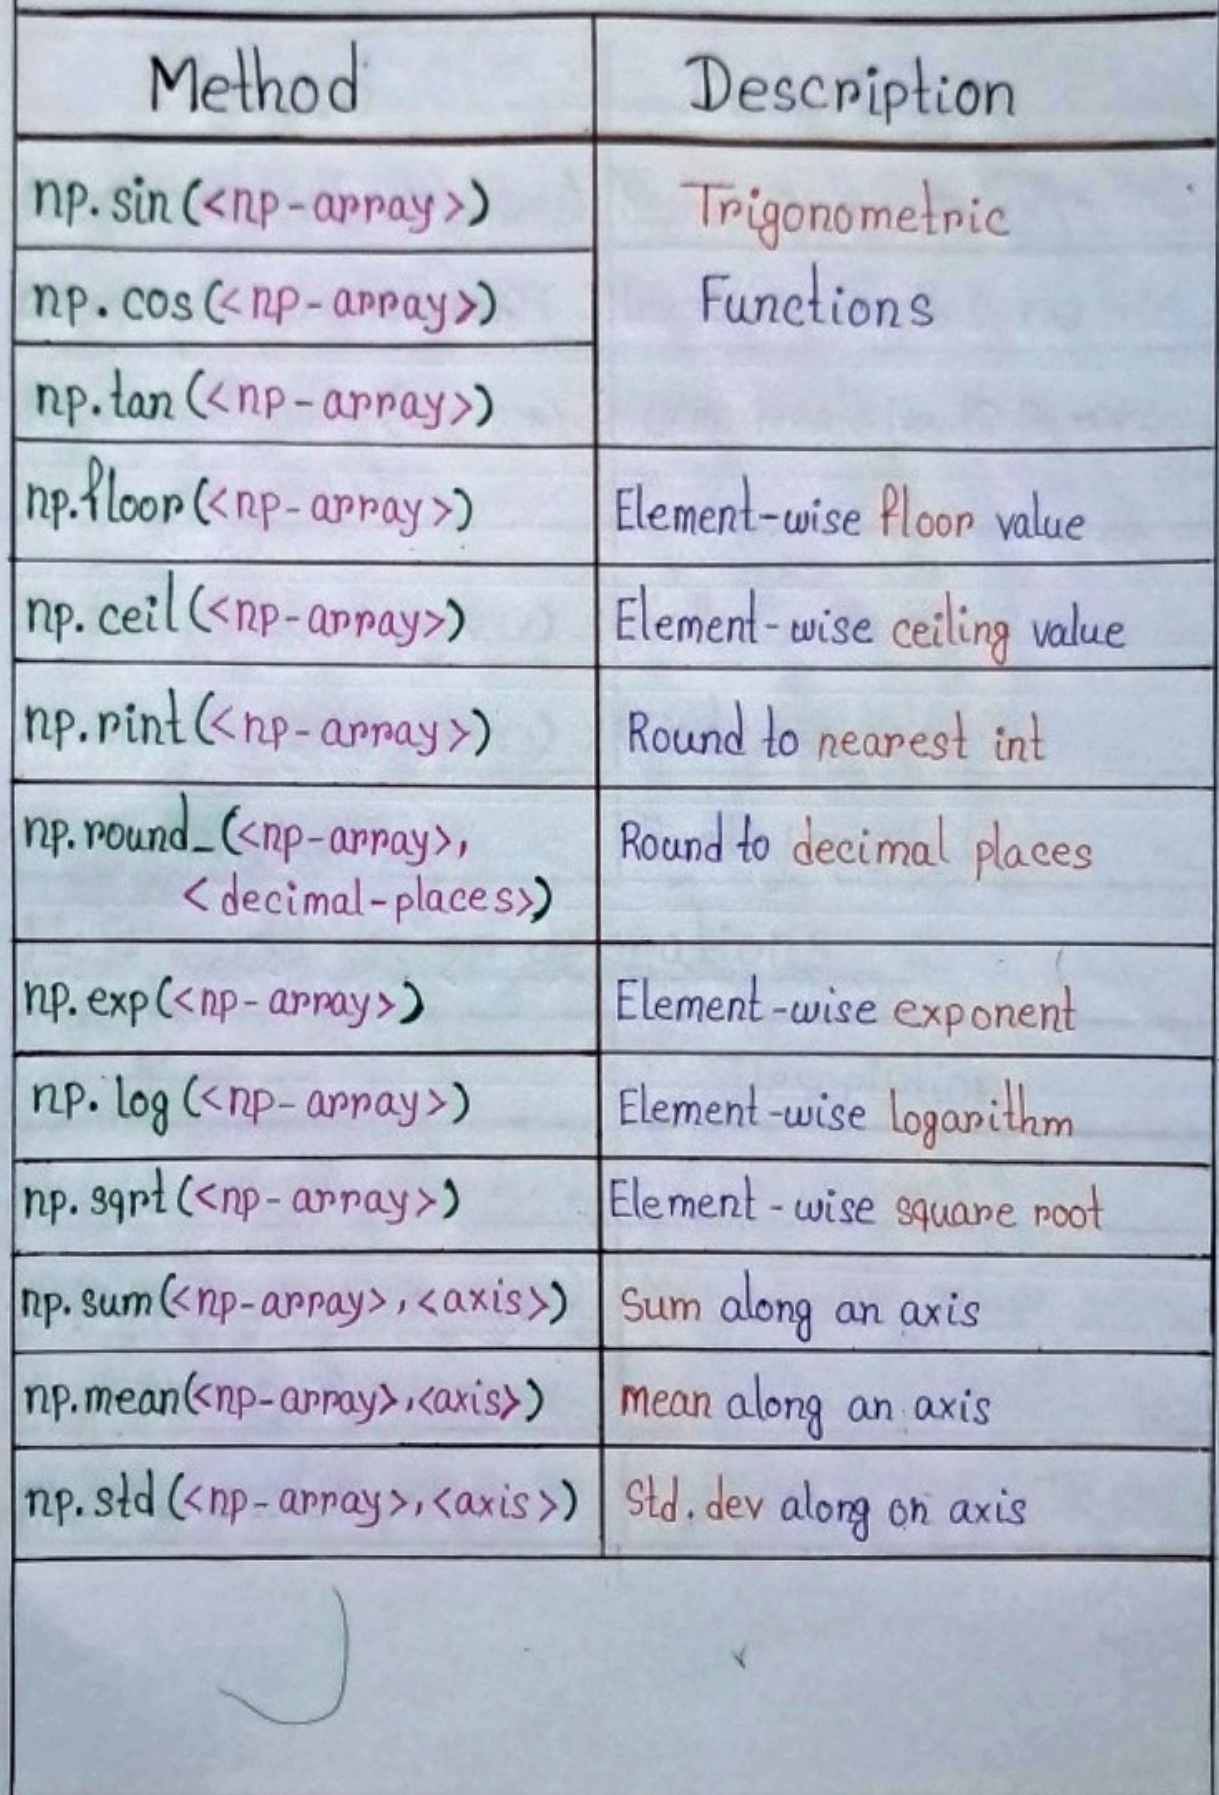 Method Description
np.sin(<np-array>) Trigonometric
np.cos(<np-array>) Functions
np.tan(<np-array>)
np.floor(<np-array>) Element-wise floor value
np.ceil(<np-array>) Element-wise ceiling value
np.rint(<np-array>) Round to nearest int
np.round_(<np-array>, Round to decimal places
<decimal-places>)
np.exp(<np-array>) Element-wise exponent
np.log(<np-array>) Element-wise logarithm
np.sqrt(<np-array>) Element-wise square root
np.sum(<np-array>,<axis>) Sum along an axis
np.mean(<np-array>,<axis>) mean along an axis
np.std(<np-array>,<axis>) Std.dev along on axis